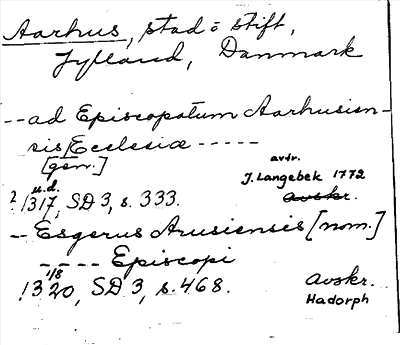 Aarhus, stad o stift,
Jylland, Danmark
-- ad Episcopatum Aarhusien-
sis Ecclesiæ -----
[gen.]
avtr.
J. Langebek 1772
u.d.
? !1317, SD 3, s. 333.
Avskr.
-- Esgerus Arusiensis [nom.]
---- Episcopi
1/8
!1320, SD 3, s. 468.
Avskr.
Hadorph